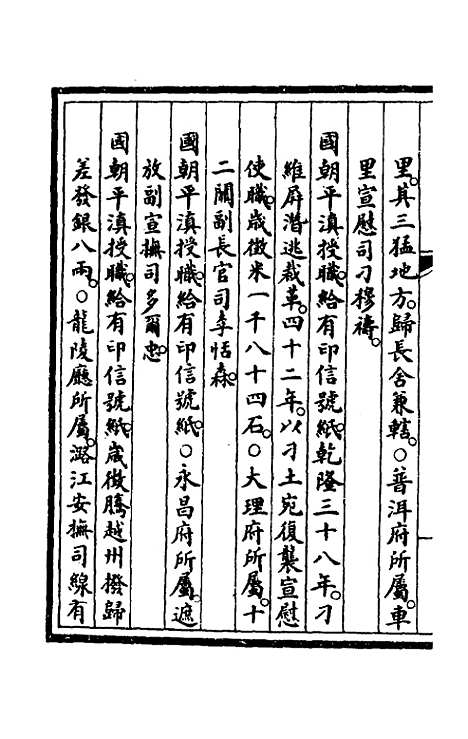 里。其三猛地方。歸長舍兼轄。○普洱府所屬。車
里宣慰司刁穆禱。
國朝平滇授職。給有印信號紙。乾隆三十八年。刁
維屏潛逃裁革。四十二年。以刁土宛復襲宣慰
使職。歲徵米一千八十四石。○大理府所屬。十
二關副長官司李恬森。
國朝平滇授職。給有印信號紙。○永昌府所屬。遮
放副宣撫司多爾忠。
國朝平滇授職。給有印信號紙。歲徵騰越州撥歸
差發銀八兩。○龍陵廳所屬。潞江安撫司線有